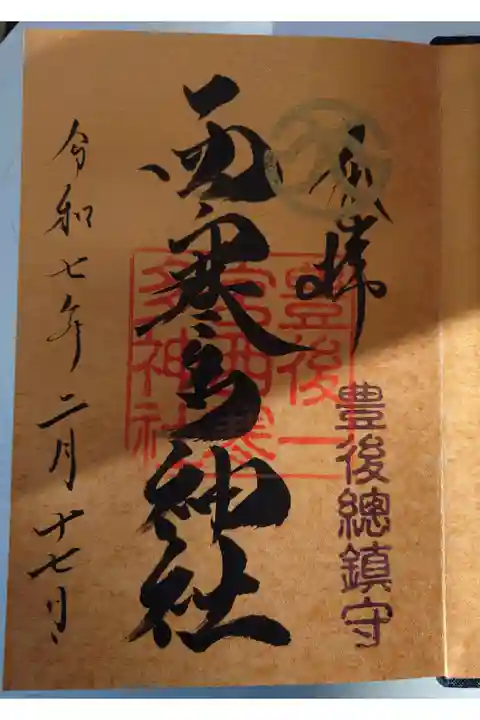 奉拝
豊後總鎮守
西寒多神社
豊後一
宮西寒
多神社
令和七年二月十七日